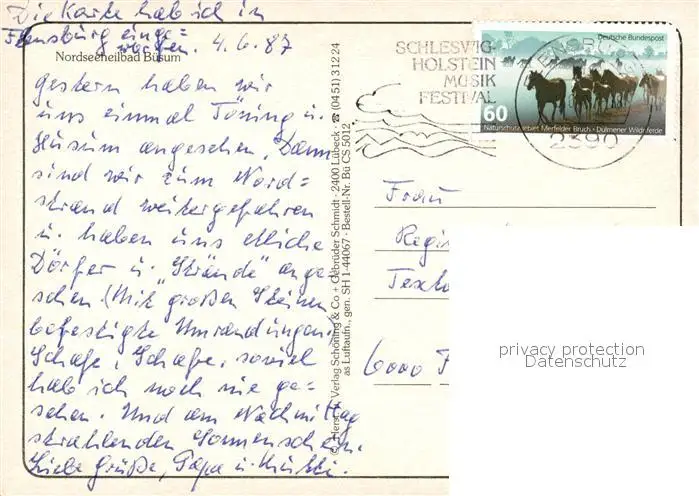 Die Karte hab ich in
Flensburg einge=
worfen. 4.6.87
Nordseeheilbad Büsum
gestern haben wir
uns einmal Töning u.
Husum angesehen. Dann
sind wir zum Nord=
strand weitergefahren
u. haben uns etliche
Dörfer u. "Strände" ange=
sehen (Mit großen Steinen
befestigte Umrandungen.
Schafe, Schafe, soviel
hab ich noch nie ge=
sehen. Und am Nachmittag
strahlenden Sonnenschein.
Liebe Grüße, Papa u. Mutti.
Verlag Schöning & Co + Gebrüder Schmidt · 2400 Lübeck · ☎ (04 51) 3 12 24
Luftaufn., gen. SH 1-44067 · Bestell-Nr. Bü CS 5012
SCHLESWIG-
HOLSTEIN
MUSIK
FESTIVAL
Deutsche Bundespost
60
Naturschutzgebiet Merfelder Bruch · Dülmener Wildpferde
FLENSBURG
2390
Frau
Regi
Texto
6000 F
privacy protection
Datenschutz